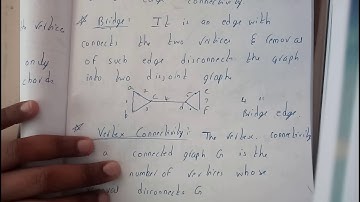 connectivity
* Bridge: It is an edge with
connects the two vertices & removal
of such edge disconnects the graph
into two disjoint graph
a c b e
b d f
" b "
Bridge edge.
* Vertex Connectivity: The vertex connectivity
a connected graph G is the
number of vertices whose
removal disconnects G
the vertices
only
chords